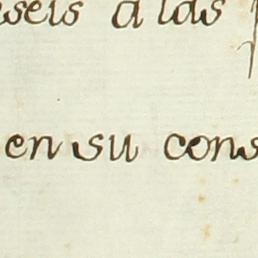 seis a las
en su cons